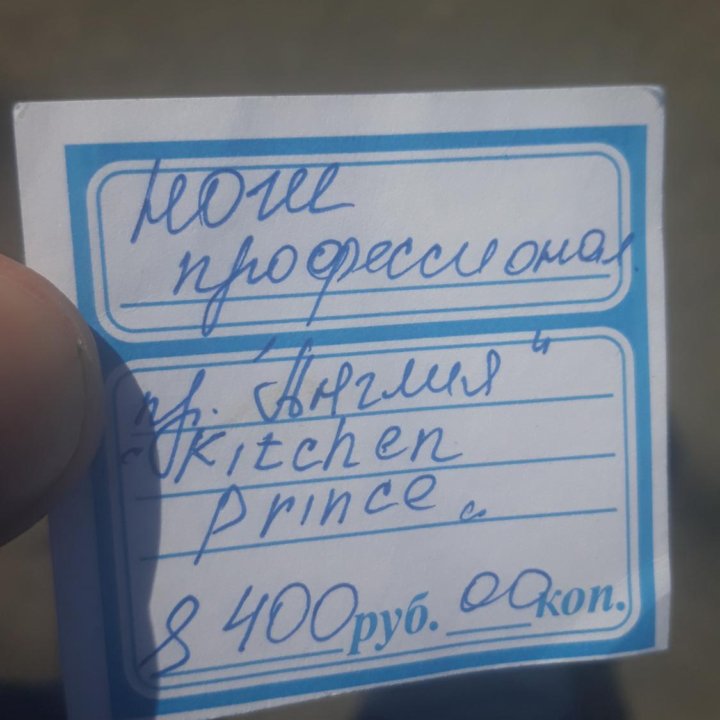 Нож
профессионал
пр. "Англия"
"Kitchen
Prince"
8 400 руб. 00 коп.